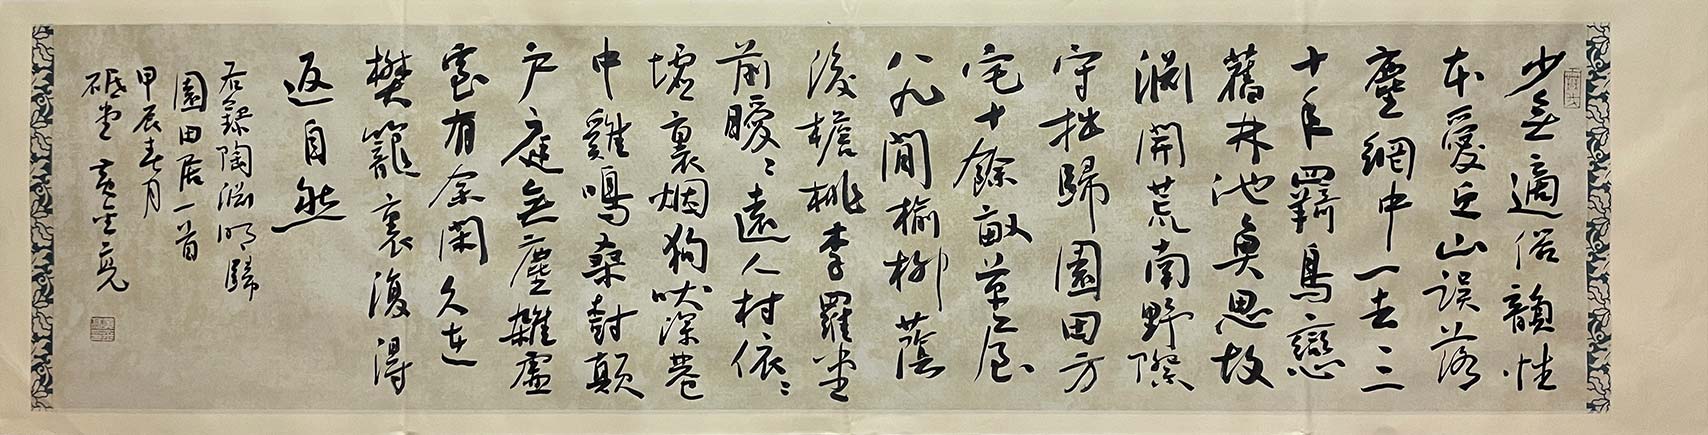 少無適俗韻性
本愛丘山誤落
塵網中一去三
十年羈鳥戀
舊林池魚思故
淵開荒南野際
守拙歸園田方
宅十餘畝草屋
八九間榆柳蔭
後檐桃李羅堂
前曖〻遠人村依〻
墟裏烟狗吠深巷
中雞鳴桑樹顛
戶庭無塵雜虛
室有余閑久在
樊籠裏復得
返自然
右錄陶淵明歸
園田居一首
甲辰春月
砥堂